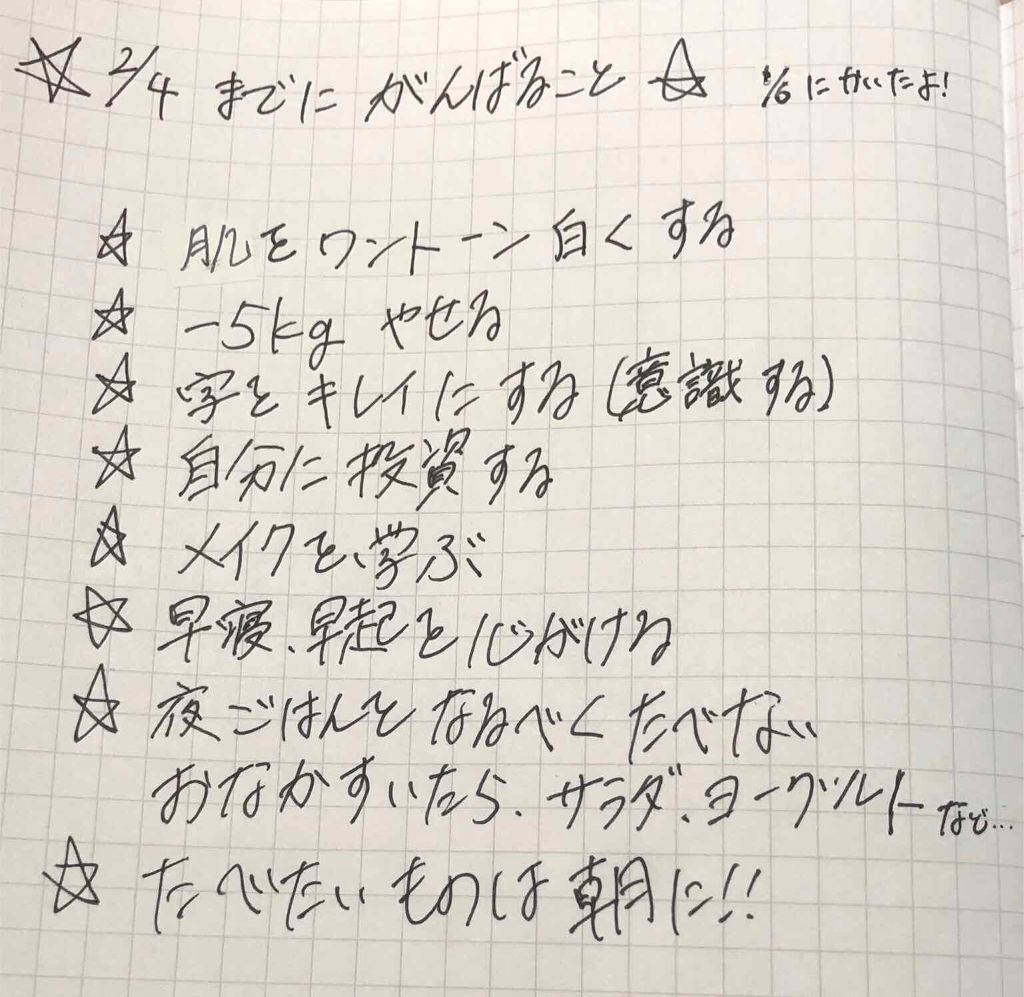 ☆ 2/4 までに がんばること ☆ 1/6 にかいたよ!
☆ 肌をワントーン白くする
☆ -5kg やせる
☆ 字をキレイにする(意識する)
☆ 自分に投資する
☆ メイクを学ぶ
☆ 早寝、早起を心がける
☆ 夜ごはんをなるべくたべない
おなかすいたら、サラダ、ヨーグルトなど...
☆ たべたいものは朝に!!